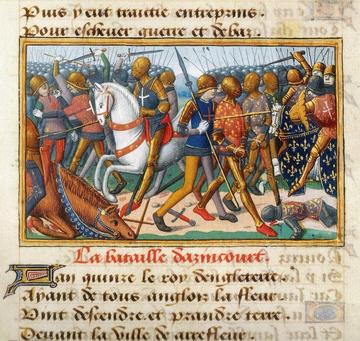 Puis y eut traictie entreprins.
Pour eschever guerre et debaz.
La bataille dazincourt.
Lan quinze le roy dengleterre.
Ayant de tous anglois la fleur.
Vint descendre et prandre terre.
Devant la ville de